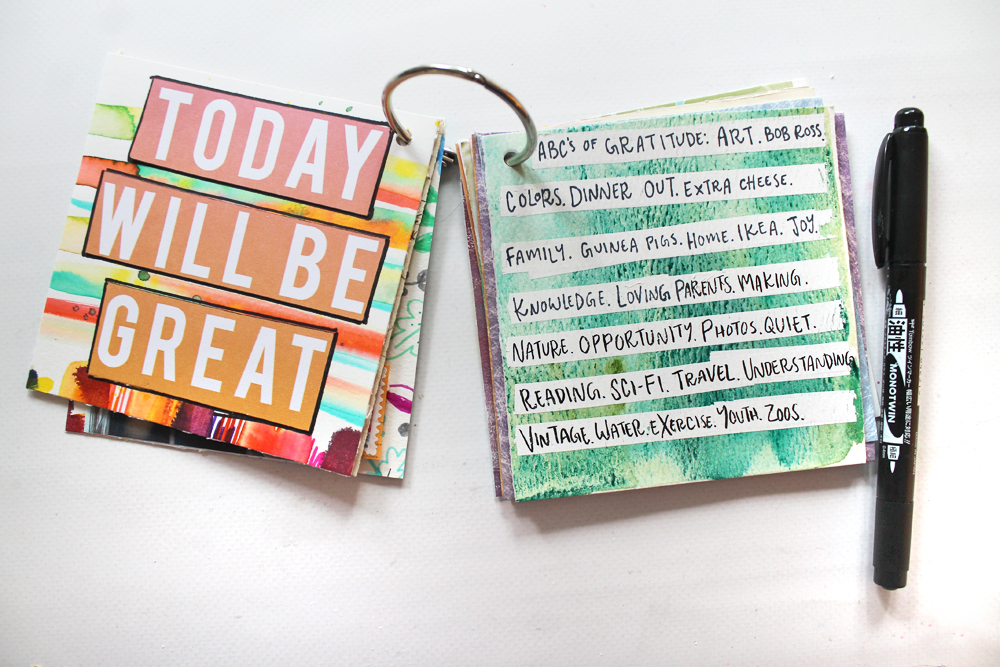 TODAY
WILL BE
GREAT
ABC's OF GRATITUDE: ART. BOB ROSS.
COLORS. DINNER OUT. EXTRA CHEESE.
FAMILY. GUINEA PIGS. HOME. IKEA. JOY.
KNOWLEDGE. LOVING PARENTS. MAKING.
NATURE. OPPORTUNITY. PHOTOS. QUIET.
READING. SCI-FI. TRAVEL. UNDERSTANDING
VINTAGE. WATER. EXERCISE. YOUTH. ZOOS.
油性
MONOTWIN
Tombow